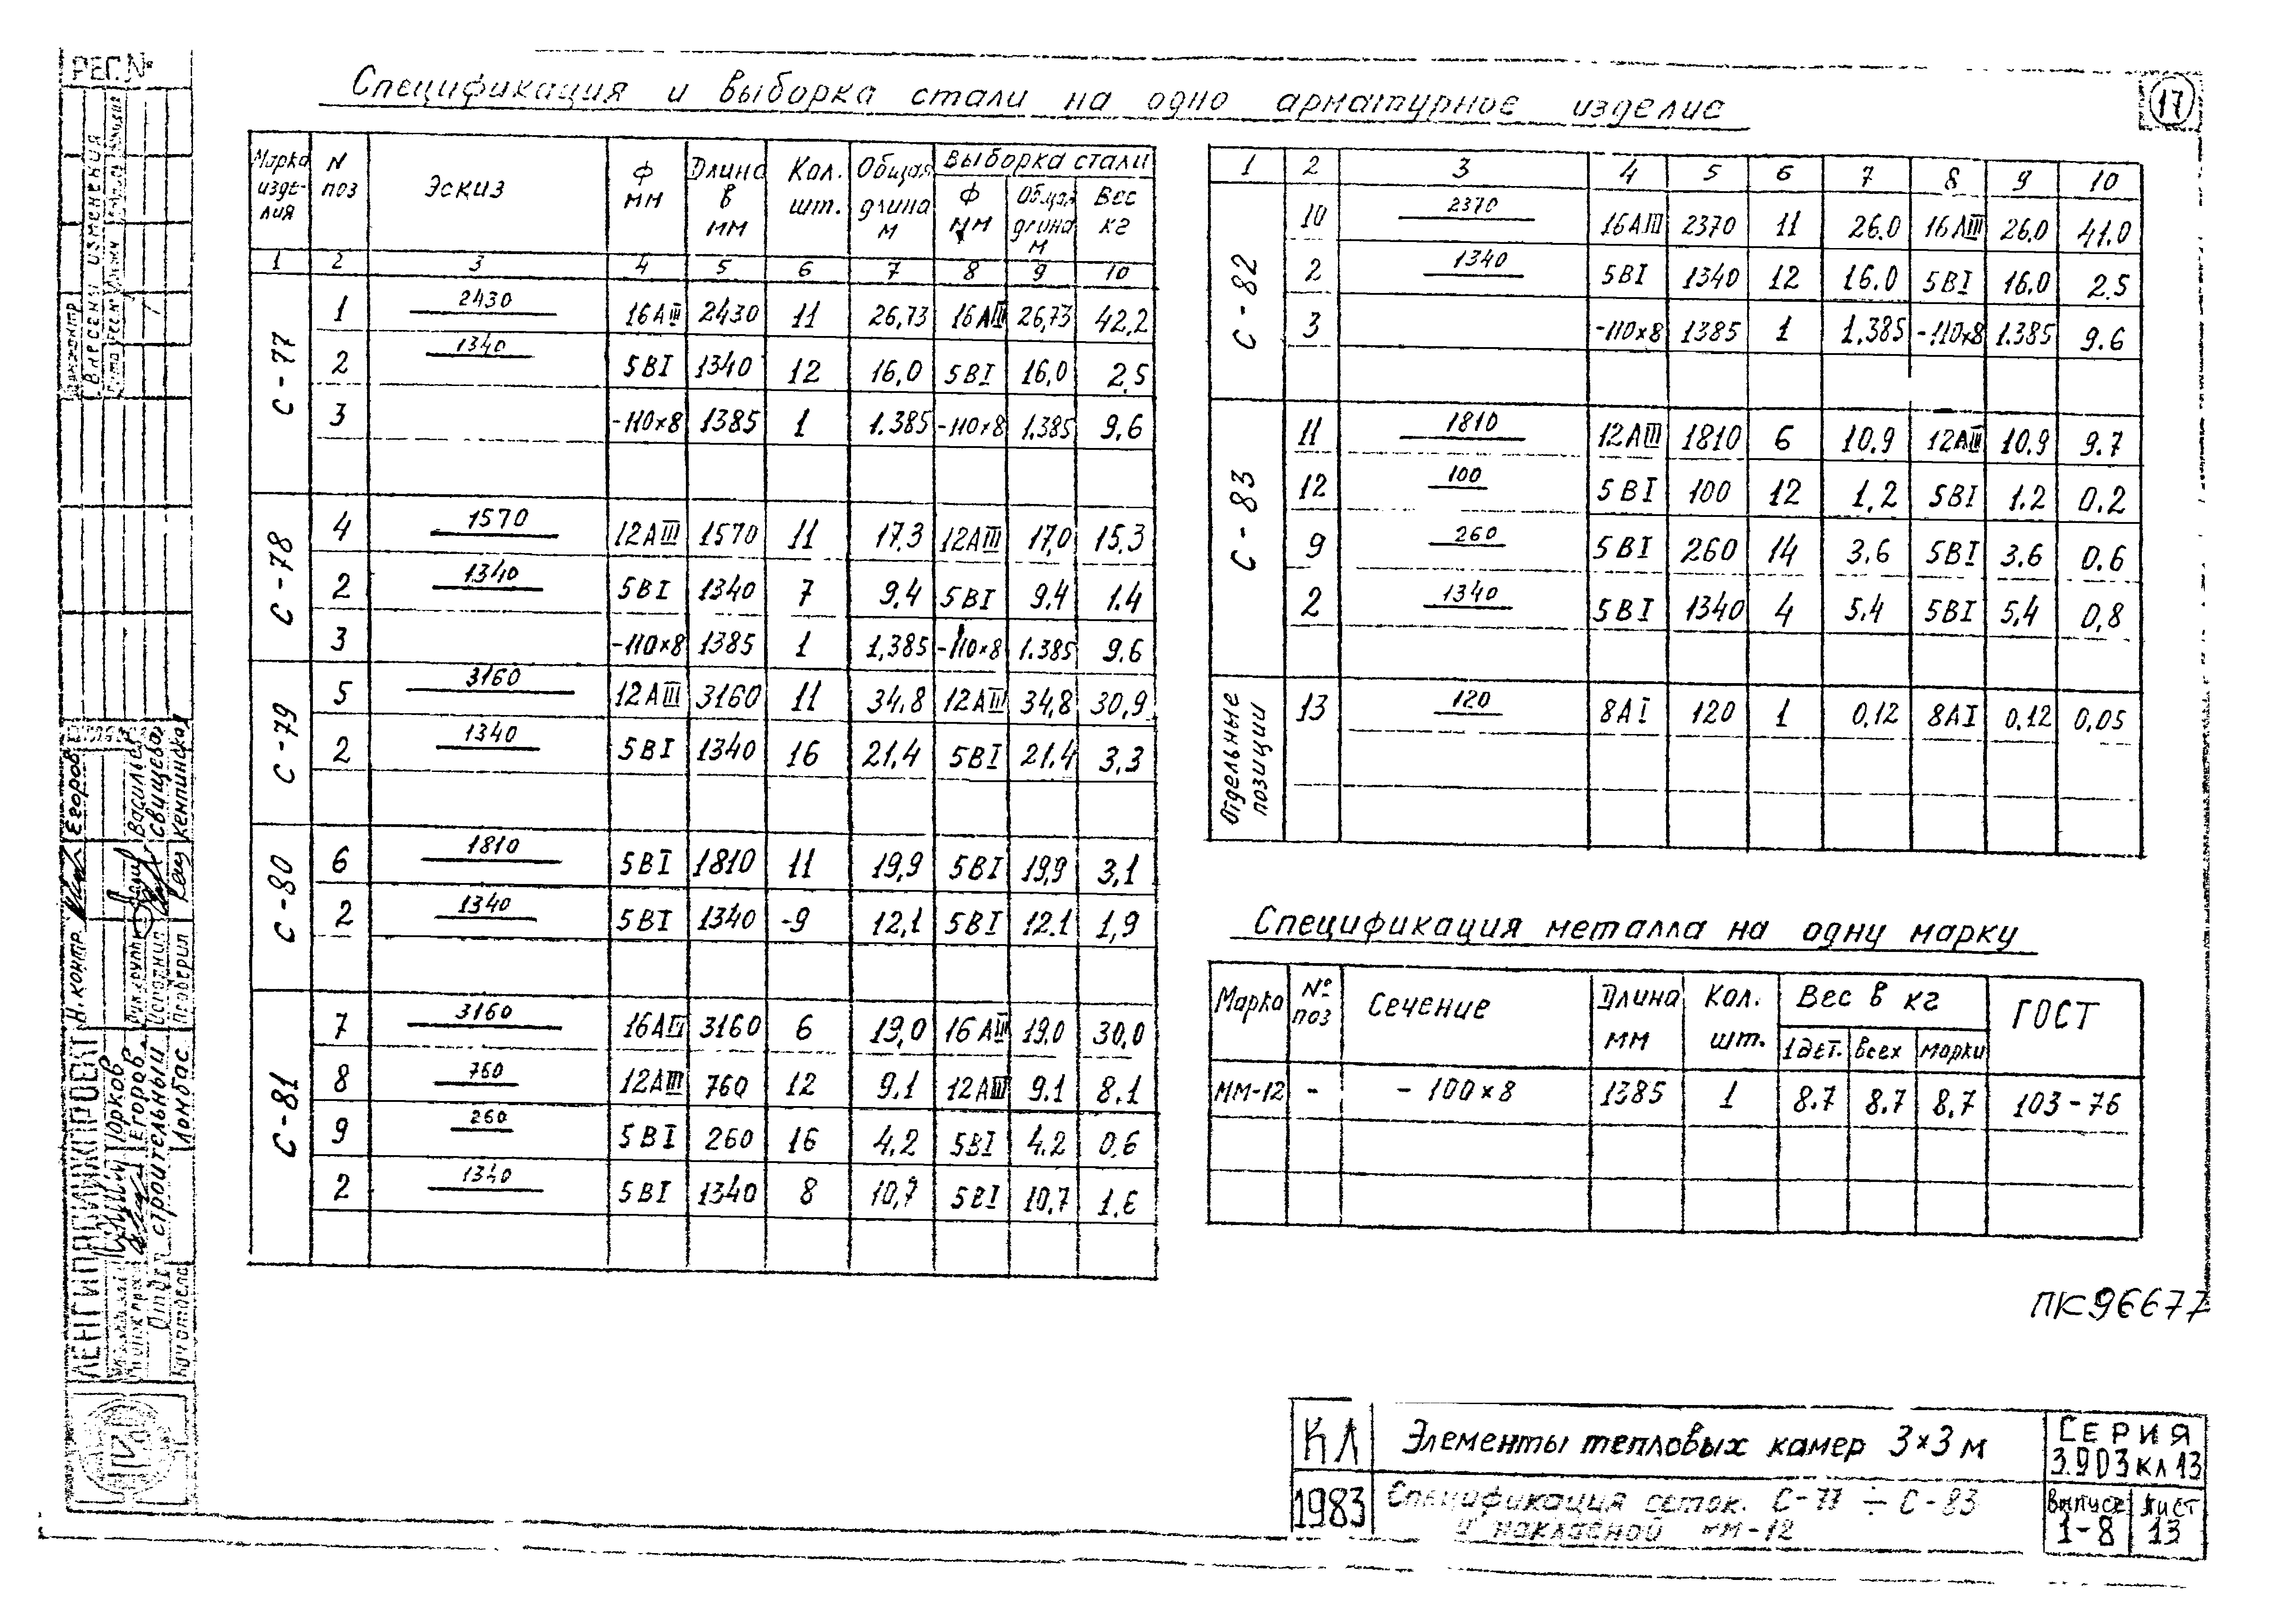 Спецификация и выборка стали на одно арматурное изделие
17
Марка изде-лия | N поз | Эскиз | Ф мм | Длина в мм | Кол. шт. | Общая длина м | Выборка стали: Ф мм | Общая длина м | Вес кг
1 2 3 4 5 6 7 8 9 10
С-77
1 2430 16АIII 2430 11 26,73 16АIII 26,73 42,2
2 1340 5ВI 1340 12 16,0 5ВI 16,0 2,5
3 -110×8 1385 1 1.385 -110×8 1.385 9.6
С-78
4 1570 12АIII 1570 11 17.3 12АIII 17,0 15.3
2 1340 5ВI 1340 7 9.4 5ВI 9.4 1.4
3 -110×8 1385 1 1,385 -110×8 1.385 9.6
С-79
5 3160 12АIII 3160 11 34,8 12АIII 34,8 30,9
2 1340 5ВI 1340 16 21,4 5ВI 21.4 3,3
С-80
6 1810 5ВI 1810 11 19,9 5ВI 19,9 3,1
2 1340 5ВI 1340 -9 12,1 5ВI 12.1 1,9
С-81
7 3160 16АIII 3160 6 19,0 16АIII 19,0 30,0
8 760 12АIII 760 12 9.1 12АIII 9.1 8.1
9 260 5ВI 260 16 4,2 5ВI 4.2 0,6
2 1340 5ВI 1340 8 10,7 5ВI 10,7 1.6
1 2 3 4 5 6 7 8 9 10
С-82
10 2370 16АIII 2370 11 26.0 16АIII 26,0 41.0
2 1340 5ВI 1340 12 16.0 5ВI 16,0 2.5
3 -110×8 1385 1 1,385 -110×8 1.385 9.6
С-83
11 1810 12АIII 1810 6 10,9 12АIII 10,9 9.7
12 100 5ВI 100 12 1,2 5ВI 1.2 0.2
9 260 5ВI 260 14 3,6 5ВI 3.6 0.6
2 1340 5ВI 1340 4 5,4 5ВI 5,4 0,8
Отдельные позиции
13 120 8АI 120 1 0,12 8АI 0,12 0,05
Спецификация металла на одну марку
Марка | № поз | Сечение | Длина мм | Кол. шт. | Вес в кг: 1 дет. | Всех | марки | ГОСТ
ММ-12 - - 100×8 1385 1 8.7 8.7 8,7 103-76
ПК 96677
КЛ
Элементы тепловых камер 3×3 м
СЕРИЯ
3.903 кл 13
1983
Спецификация сеток. С-77 ÷ С-83
и накладной мм-12
Выпуск
1-8
Лист
13
РЕГ. №
Внесены изменения
ЛЕНГИПРОИНЖПРОЕКТ
Н. контр. Егоров
Юрков
Егоров
Отдел строительный
Нач отдела Ломбас
Васильев
Свищева
Проверил Кемпинска